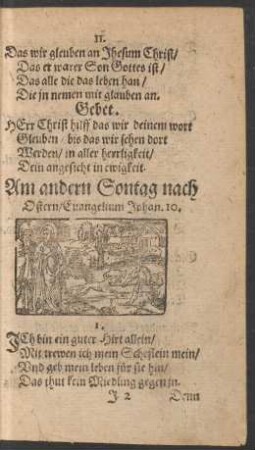 11.
Das wir gleuben an Jhesum Christ/
Das er warer Son Gottes ist/
Das alle die das leben han/
Die jn nemen mit glauben an.
Gebet.
HErr Christ hilff das wir deinem wort
Gleuben / bis das wir sehen dort
Werden/ in aller herrligkeit/
Dein angesicht in ewigkeit.
Am andern Sontag nach
Ostern/Euangelium Johan. 10.
1.
JCh bin ein guter Hirt allein/
Mit trewen ich mein Scheflein mein/
Vnd geb mein leben für sie hin/
Das thut kein Miedling gegen jn.
J 2 Denn